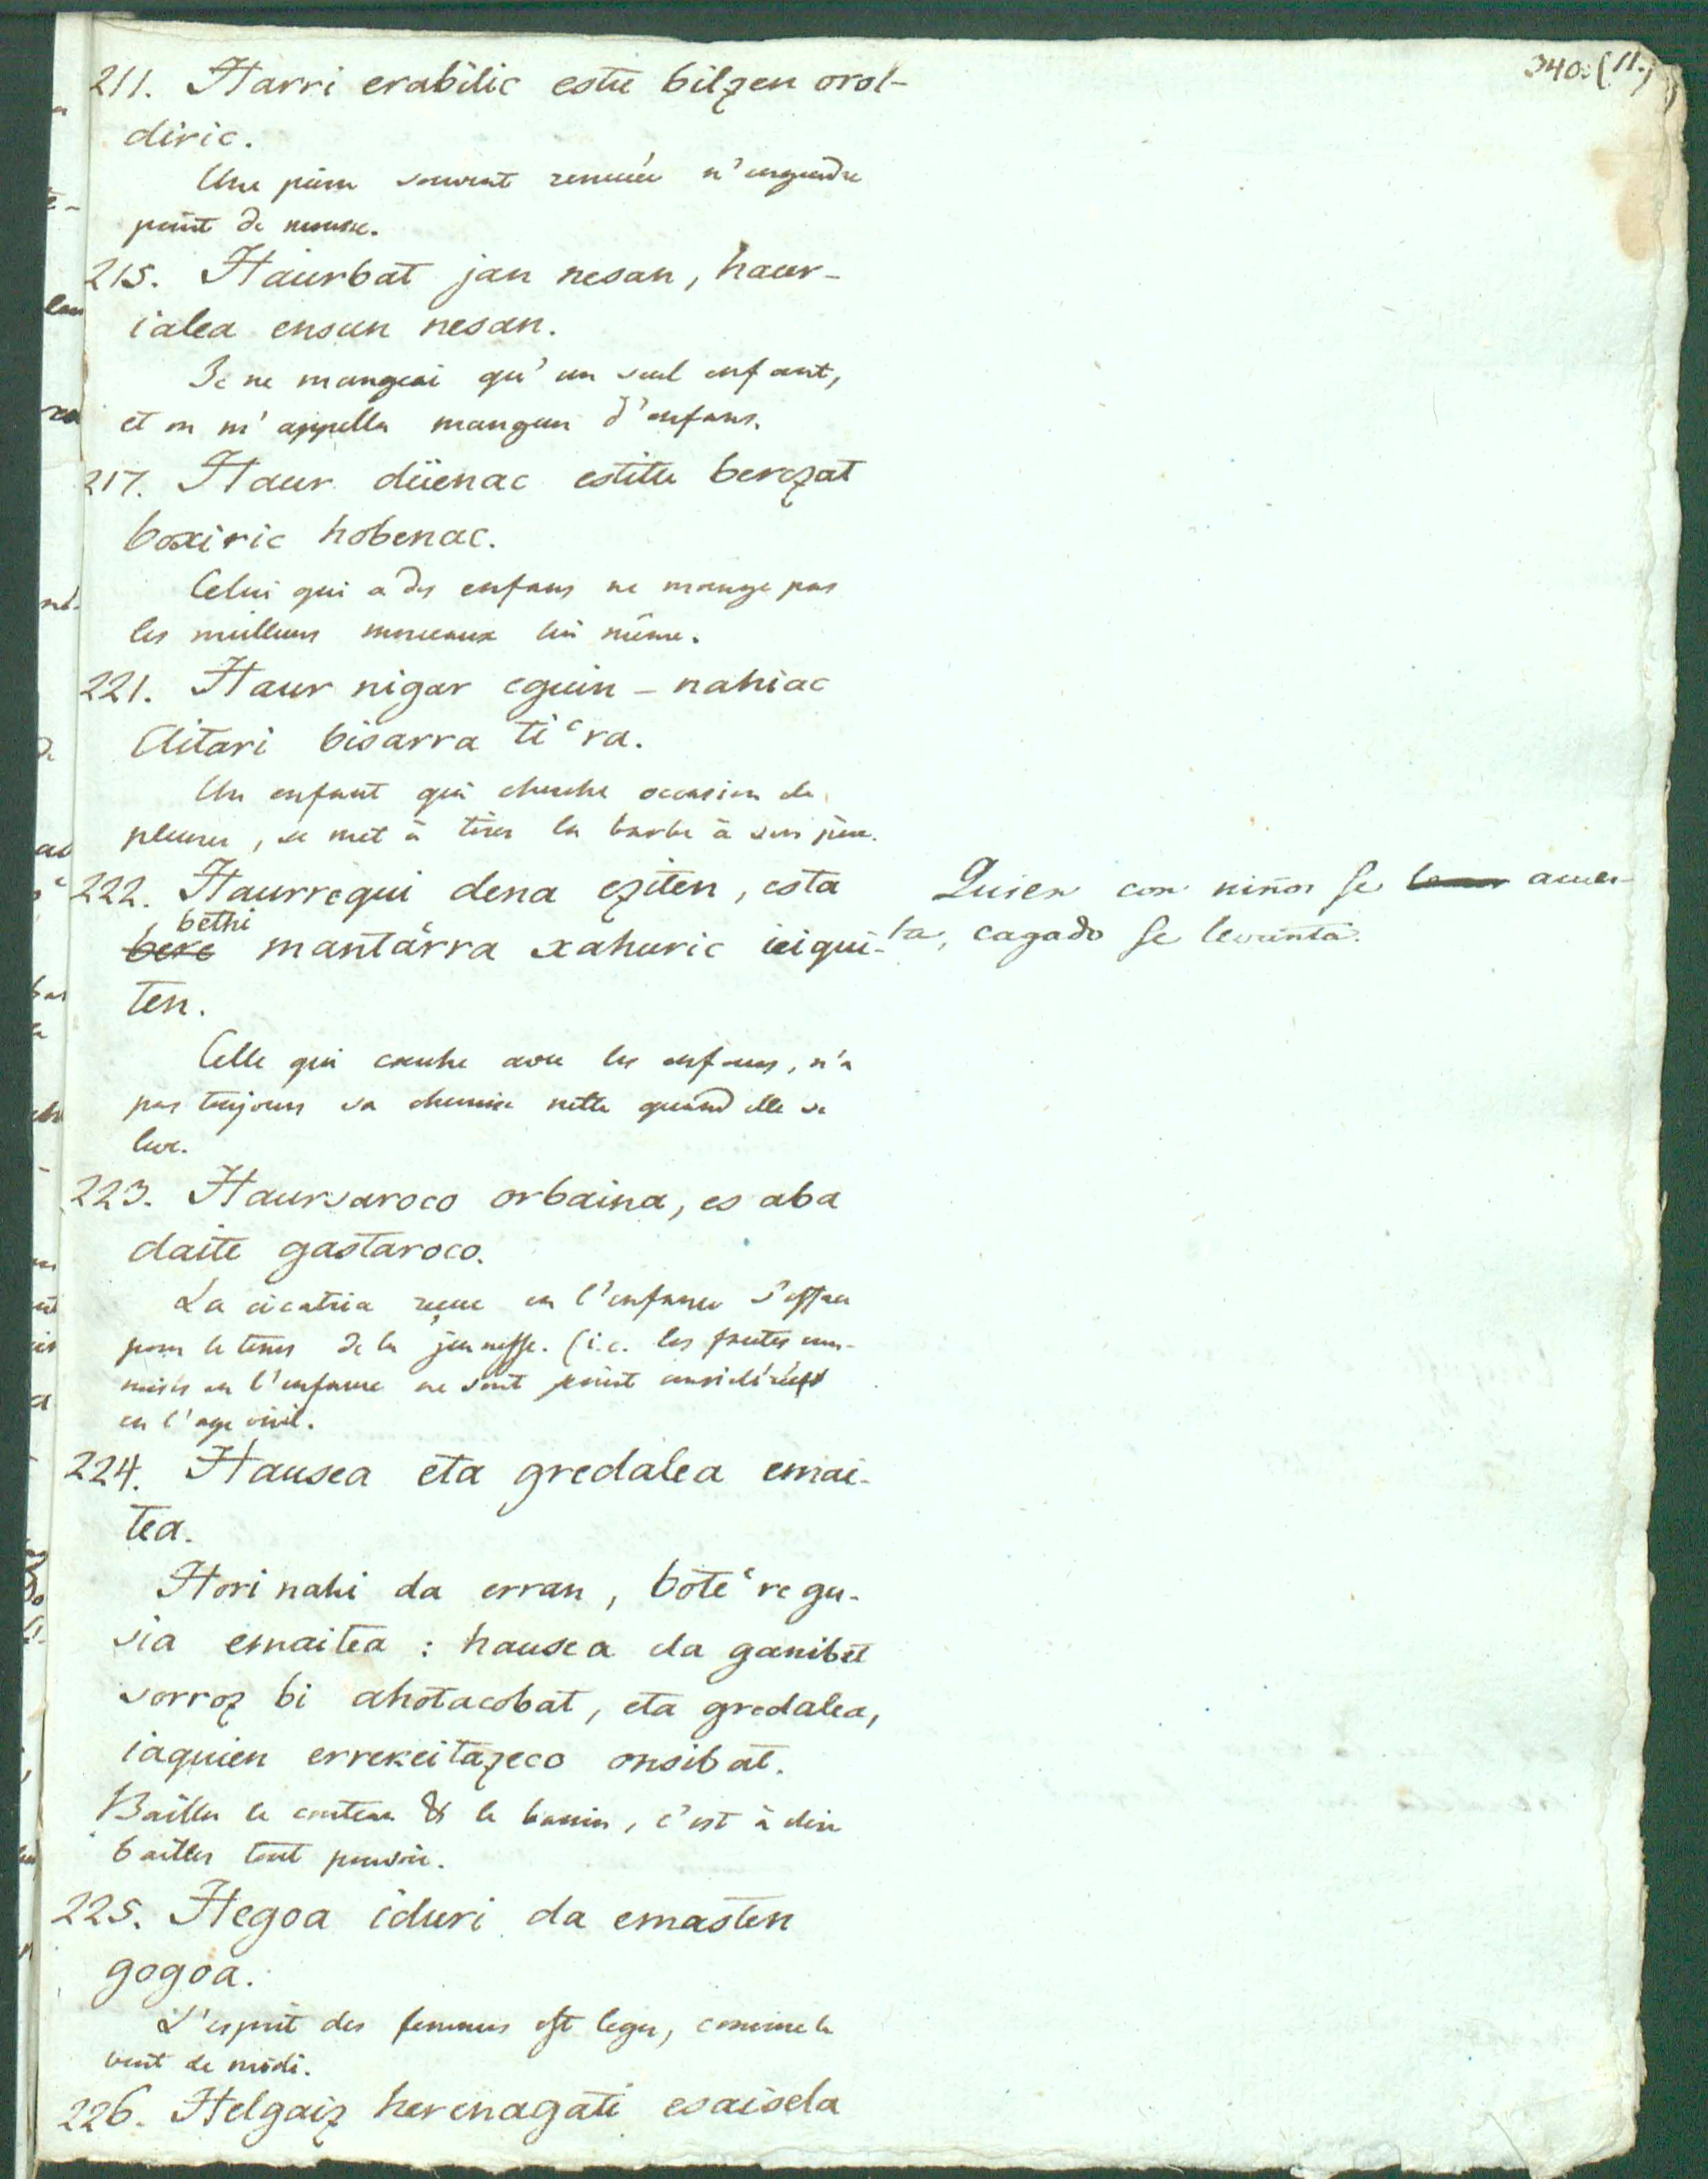 340. (11.)
211. Harri erabilic estu bilzen orol-
diric.
Une pierre souvent remuée n'engendre
point de mousse.
215. Haurbat jan nesan, haur-
ialea ensun nesan.
Je ne mangeai qu'un seul enfant,
et on m'appella mangeur d'enfans.
217. Haur düenac estitu berezat
boxiric hobenac.
Celui qui a des enfans ne mange pas
les meilleurs morceaux lui même.
221. Haur nigar eguin-nahiac
Aitari bisarra ti͑ra.
Un enfant qui cherche occasion de
pleurer, se met à tirer la barbe à son père.
222. Haurrequi dena eziten, esta
bethi
mantárra xahuric ieigui-
ten.
Quien con niños se acues-
ta, cagado se levanta.
Celle qui couche avec les enfans, n'a
pas toujours sa chemise nette quand elle se
leve.
223. Haursaroco orbaina, es aba
daite gastaroco.
La cicatrice reçue en l'enfance s'efface
pour le tems de la jeunesse. (i.e. les fautes com-
mises en l'enfance ne sont point considérées
en l'age viril.
224. Hausea eta gredalea emai-
tea.
Hori nahi da erran, bote͑re gu-
sia emaitea: hausea da ganibet
sorroz bi ahotacobat, eta gredalea,
iaquien errekeitazeco onsibat.
Bailler le couteau & le bassin, c'est à dire
bailler tout pouvoir.
225. Hegoa iduri da emasten
gogoa.
L'esprit des femmes est leger, comme le
vent de midi.
226. Helgaiz herenagati esaisela